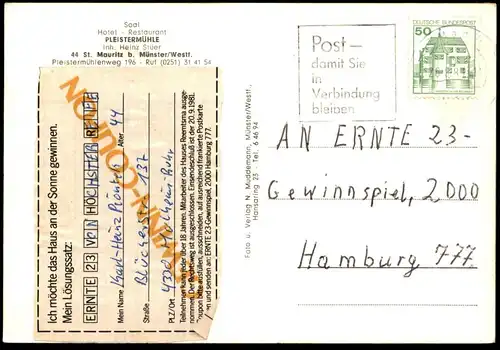 Saal
Hotel - Restaurant
PLEISTERMÜHLE
Inh. Heinz Stuer
44 St. Mauritz b. Münster/Westf.
Pleistermühlenweg 196 - Ruf (0251) 31 41 54
Post –
damit Sie
in
Verbindung
bleiben
DEUTSCHE BUNDESPOST
50
Foto u. Verlag N. Muddemann, Münster/Westf.
Hansaring 25 - Tel. 6 46 94
AN ERNTE 23-
Gewinnspiel, 2000
Hamburg 777
Ich möchte das Haus an der Sonne gewinnen.
Mein Lösungssatz:
ERNTE 23 VON HÖCHSTER REIFE
Mein Name Karl-Heinz Alter 44
Straße Blücherstr. 137
PLZ/Ort 4330 Mülheim-Ruhr
Teilnehmen kann jeder über 18 Jahren. Mitarbeiter des Hauses Reemtsma ausge-
nommen. Der Rechtsweg ist ausgeschlossen. Einsendeschluß ist der 20.9.1981.
Coupon bitte ausfüllen, ausschneiden, auf ausreichend frankierte Postkarte
und senden an: ERNTE 23-Gewinnspiel, 2000 Hamburg 777.
GEWINN-COUPON